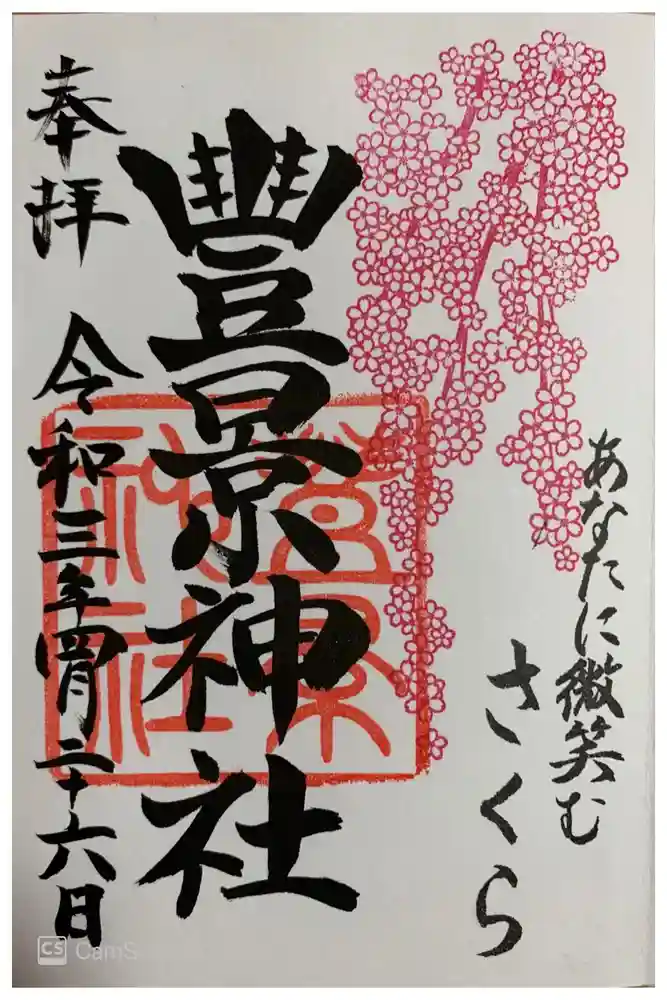 あなたに微笑む
さくら
豐景神社
豊景神社
奉拝 令和三年四月二十六日
CS CamS